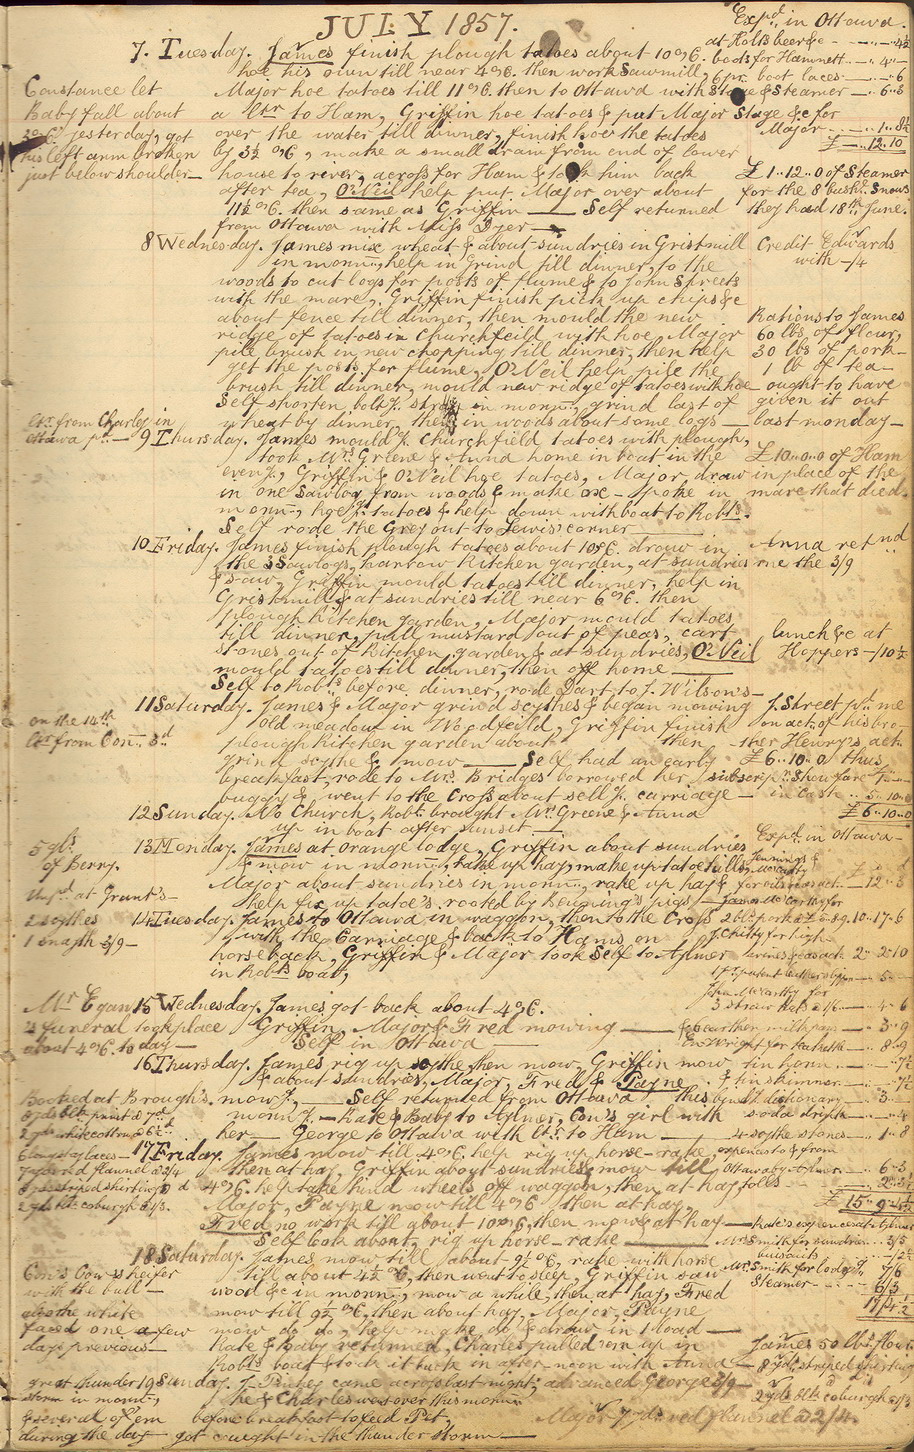 JULY 1857.
Expd. in Ottawa.
at Holts beer &c - - 4½
7. Tuesday. James finish plough tatoes about 10 o'c. boots for Hamnett .. 4 "
hoe his own till near 4 o'c. then work Sawmill, 6 pr. boot laces - " - 6
Constance let
Major hoe tatoes till 11 o'c. then to Ottawa with Stage & Steamer - .. 6 .. 3
Baby fall about
a ltr to Ham, Griffin hoe tatoes & put Major
Stage &c for
3 o'c. yesterday, got
over the water till dinner, finish hoe the tatoes
Major - - 1 .. 8½
his left arm broken
by 3½ o'c, make a small dram from end of lower
£ - .. 12 .. 10
just below shoulder -
house to river, across for Ham & took him back
£ 1 .. 12 .. 0 of Steamer
after tea, O'Neil help put Major over about
for the 8 bushs. Snows
11½ o'c. then same as Griffin - Self returned
they had 18th June.
from Ottawa with Miss Dyer -
8 Wednesday. James mix wheat & about sundries in Gristmill
Credit Edwards
in morng, help in Grind till dinner, to the
with - /4
woods to cut logs for posts of flume & to John Streets
with the mare, Griffin finish pick up chips &c
about fence till dinner, then mould the new
Rations to James
ridge of tatoes in Churchfeild with hoe, Major
60 lbs. of flour,
pile brush in new chopping till dinner, then help
30 lbs of pork -
get the posts for flume, O'Neil help pile the
1 lb of tea -
brush till dinner, mould new ridge of tatoes with hoe
ought to have
Self shorten bolty. in morng, grind last of
given it out
ltr. from Charley in
wheat by dinner, then in woods about some logs -
last monday -
Ottawa pr. -
9 Thursday. James mould y. Churchfield tatoes with plough,
took Mrs. Greene & Anna home in boat in the
£ 10 .. 0 .. 0 of Ham
eveng., Griffin & O'Neil hoe tatoes, Major, draw
in place of the
in one Sawlog from woods & make ox-yoke in
mare that died.
morng, hoe y. tatoes & help down with boat to Robts.
Self rode the Grey out to Lewis' corner -
10 Friday. James finish plough tatoes about 10 o'c. draw in
Anna retnd
the 3 Sawlogs, harrow Kitchen garden, at sundries
me the 3/9
& saw, Griffin mould tatoes till dinner, help in
Gristmill & at sundries till near 6 o'c. then
plough Kitchen garden, Major mould tatoes
till dinner, pull mustard out of peas, cart
lunch &c at
stones out of Kitchen garden & at sundries, O'Neil
Hoppers - /10½
mould tatoes till dinner, then off home -
Self to Robts. before dinner, rode Dart to J. Wilson's -
11 Saturday. James & Major grind scythes & began mowing
J. Street pd. me
on the 14th
old meadow in Woodfeild, Griffin finish
on act. of his bro-
ltr from Conn. 3rd
plough Kitchen garden about then
ther Henry's act.
grind scythe & mow - Self had an early
£ 6 .. 10 .. 0 thus
breakfast, rode to Mrs. Bridges borrowed her
buggy & went to the Cross about sell y. carriage -
in Cash
12 Sunday. No Church, Robt. brought Mrs. Greene & Anna
£ 6 .. 10 .. 0
up in boat after sunset -
5 gls.
13 Monday. James at orange lodge, Griffin about sundries
Expd. in Ottawa -
of Berry.
& mow in morng, rake up hay, make up tatoe hills
Major about sundries in morng, rake up hay &
- 12 .. 3
at Grant's -
help fix up tatoe's rooted by Benging's pigs -
2 scythes
14 Tuesday. James to Ottawa in waggon, then to the Cross
1 snaith 3/9 -
with the Carriage & back to Hams on
horseback, Griffin & Major took Self to Aylmer
2 .. 2 .. 10
in Robts boat,
Mr Egan
15 Wednesday. James got back about 4 o'c.
John McCarthy for
3 straw hats 2/6 - 4 - 6
's funeral tookplace
Griffin, Major & Fred mowing -
- 3 .. 9
about 4 o'c. to day -
Self in Ottawa -
8 .. 9
16 Thursday. James rig up scythe, then mow, Griffin mow
tin horn - 7½
& about sundries, Major, Fred & Payne
& tin skimmer - 7½
Booked at Brough's.
mow y., - Self returned from Ottawa this
dictionary - 3
morng - Kate & Baby to Aylmer, Con's girl with
soda drink - 4
her - George to Ottawa with ltr. to Ham -
4 scythe stones - 1 .. 8
17 Friday. James mow till 4 o'c. help rig up horse-rake,
expenses to & from
then at hay, Griffin about sundries & mow till
Ottawa by Aylmer - 6 - 3
4 o'c. help take hind wheels off waggon, then at hay,
tolls -
2 yds. blk. coburgh 2/3.
Major, Payne mow till 4 o'c then at hay
£ 15 .. 9 .. 4½
Fred no work till about 10 o'c, then mow & at hay -
Kate's expences at Aylmer
Self look about, rig up horse-rake -
Mrs. Smith for sundries - 3/5
18 Saturday. James mow till about 9½ o'c, rake with horse
Con's Cow's heifer
till about 4½ o'c, then went to sleep, Griffin saw
Mrs. Smith for lodgy. 7/6
with the bull -
wood &c in morng, mow a while, then at hay, Fred
Steamer - 6/3
also the white
mow till 9½ o'c, then about hay, Major, Payne
17/4½
faced one a few
mow do do, help make do & draw in 1 load -
days previous -
Kate & Baby returned, Charles pulled 'em up in
James 50 lbs. flour
Robts boat & took it back in after-noon with Anna
8 yds. striped shirting
great thunder
19 Sunday. J. Pinhey came across last night, advanced George 3/9 -
storm in morng,
he & Charles were over this morng
2 yds blk coburgh 2/3
& several of em
before breakfast to feed Pet,
Major 7 yds red flannel a 2/4.
during the day
got caught in the thunder storm -